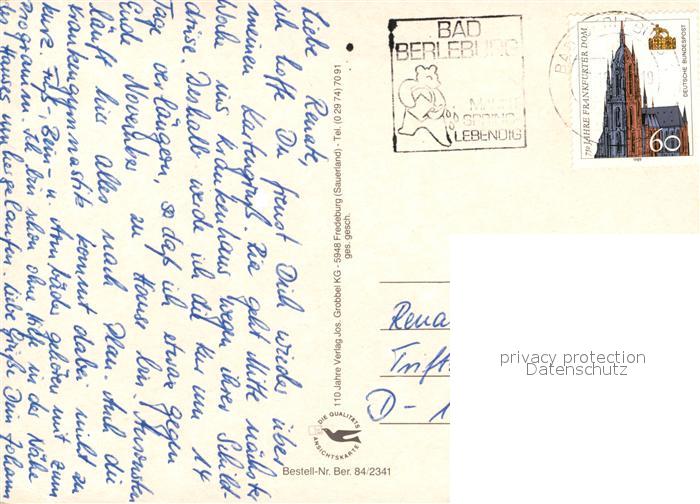 Liebe Renate,
ich hoffe Du freust Dich wieder über
meinen Kartengruß. Sie geht Mitte nächster
Woche ins Krankenhaus wegen ihrer Schild
drüse. Deshalb werde ich die Kur um 14
Tage verlängern, so daß ich etwa gegen
Ende November zu Hause bin. Ansonsten
läuft hier alles nach Plan. Auch die
Krankengymnastik kommt dabei nicht zu
kurz. Fuß-, Bein- u. Armbäder gehören mit zum
Programm. Ich bin schon ohne Hilfe in der Nähe
des Hauses umhergelaufen. Liebe Grüße Dein Johann
110 Jahre Verlag Jos. Grobbel KG - 5948 Fredeburg (Sauerland) - Tel. (0 29 74) 70 91
ges. gesch.
DIE QUALITÄTS
ANSICHTSKARTE
Bestell-Nr. Ber. 84/2341
BAD
BERLEBURG
MACHT
SPRING
LEBENDIG
BAD
750 JAHRE FRANKFURTER DOM
DEUTSCHE BUNDESPOST
60
1989
Rena
Trift
D-1
privacy protection
Datenschutz